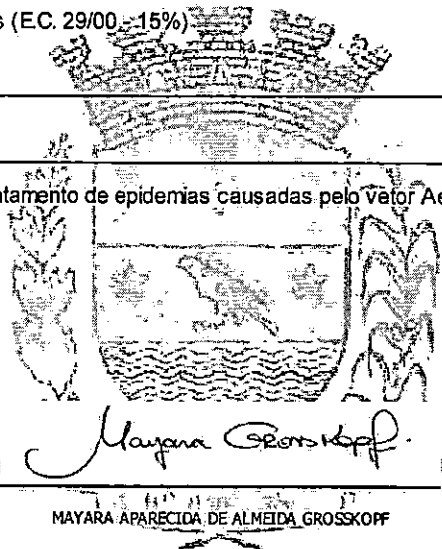 s (E.C. 29/00 - 15%)
ntamento de epidemias causadas pelo vetor Ae
Mayara Grosskopf.
MAYARA APARECIDA DE ALMEIDA GROSSKOPF